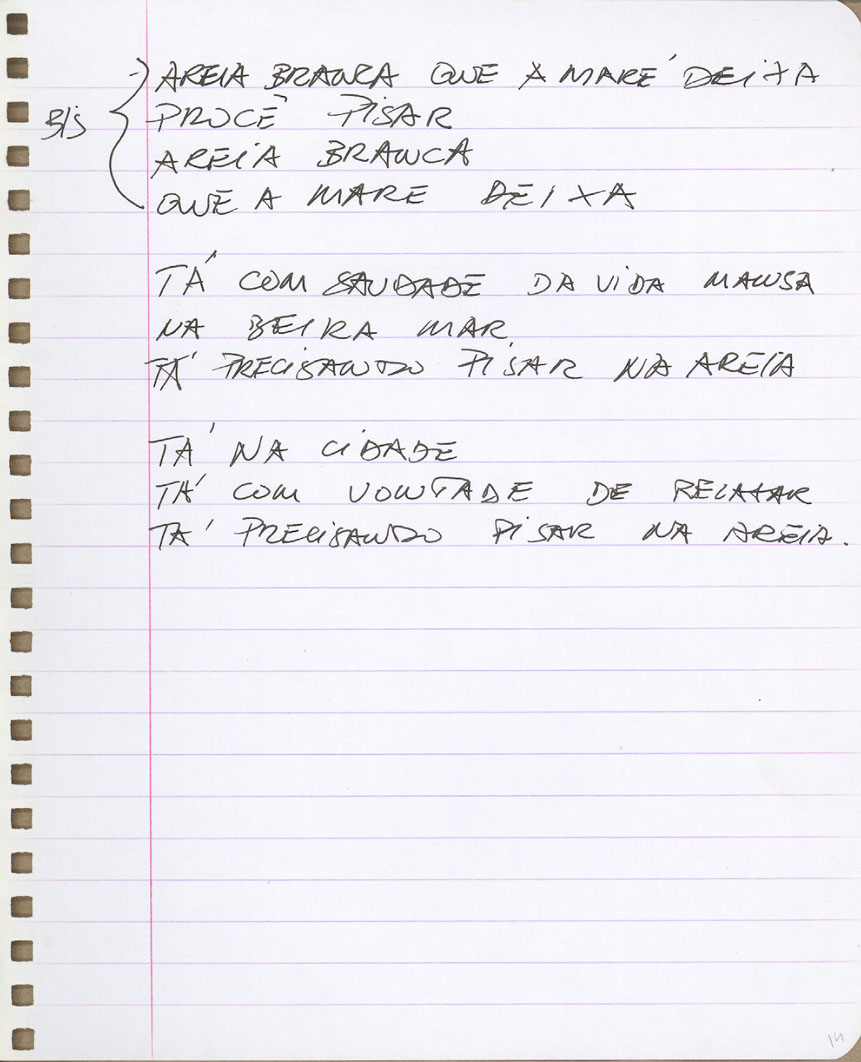 AREIA BRANCA QUE A MARÉ DEIXA
BIS PROCÊ PISAR
AREIA BRANCA
QUE A MARE DEIXA
TÁ COM SAUDADE DA VIDA MANSA
NA BEIRA MAR
TÁ PRECISANDO PISAR NA AREIA
TÁ NA CIDADE
TÁ COM VONTADE DE RELAXAR
TÁ PRECISANDO PISAR NA AREIA.
14